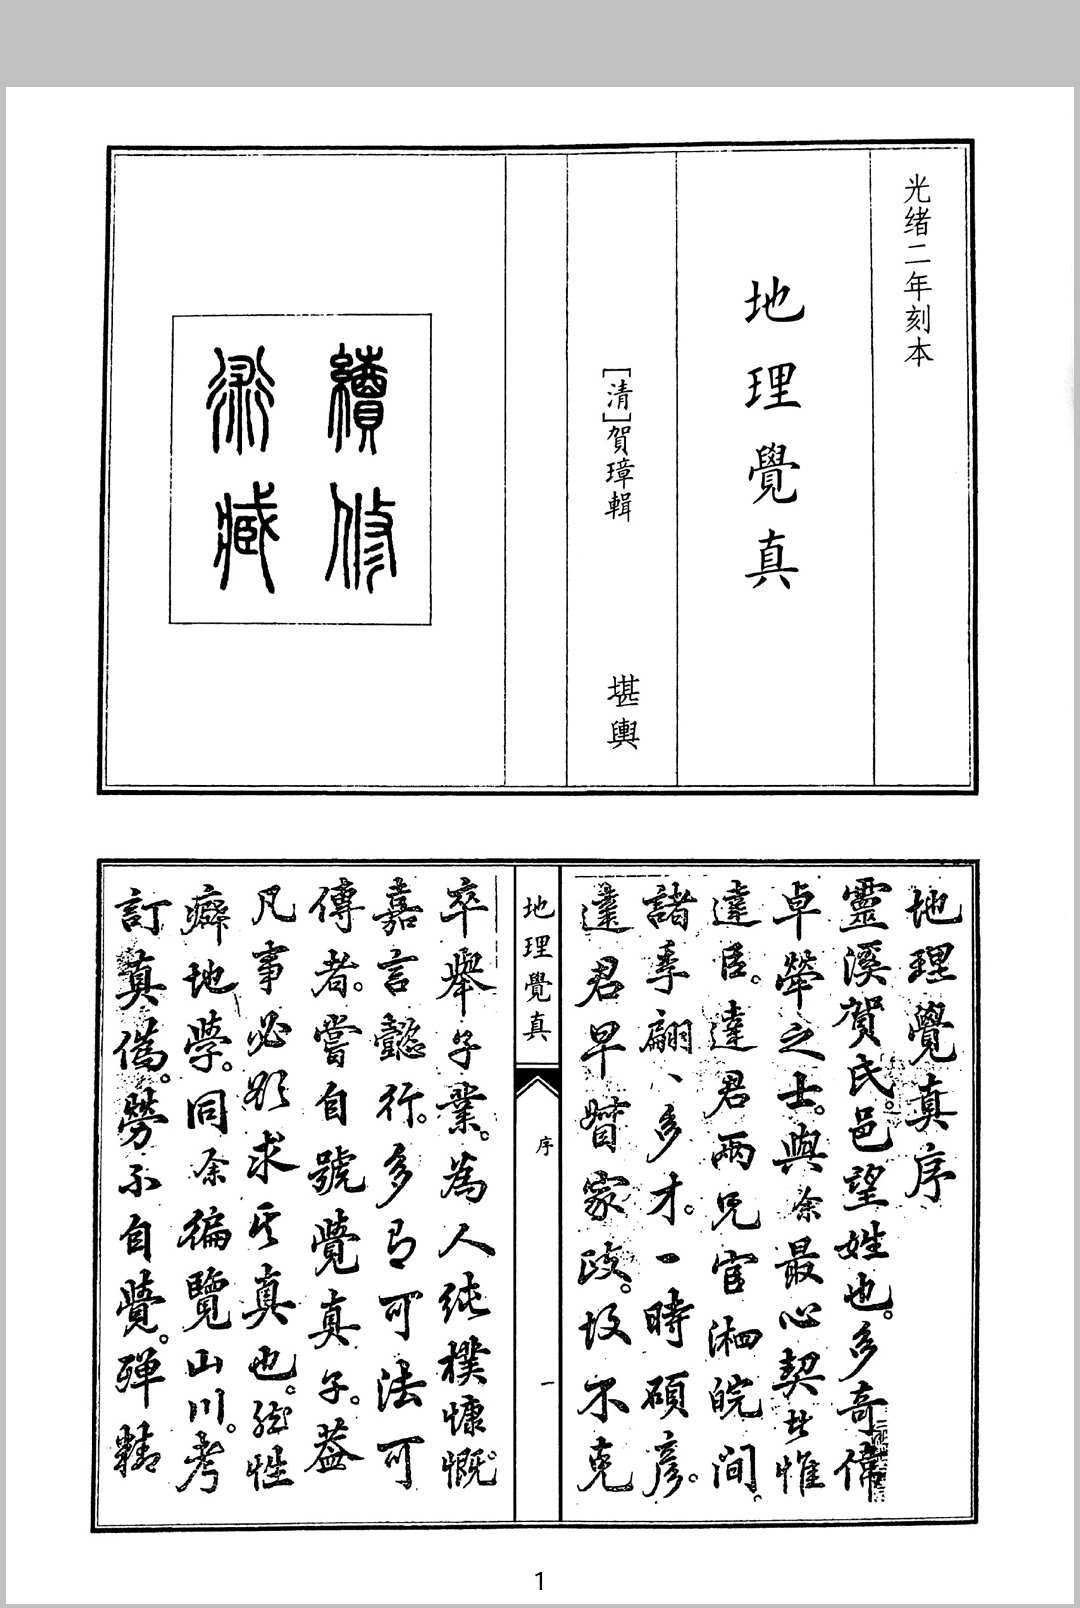 光绪二年刻本
地理覺真
[清]賀璋輯
堪輿
續修
術藏
地理覺真序
靈溪賀氏。邑望姓也。多奇偉
卓犖之士。與余最心契者惟
達臣。達君兩兄官湘皖間。
諸季翩、多才。一時碩彥。
達君早督家政。故不克
地理覺真
序
一
卒舉子業。為人純樸慷慨。
嘉言懿行。多有可法可
傳者。嘗自號覺真子。蓋
凡事必欲求其真也。然性
癖地學。同余徧覽山川。考
訂真偽。勞不自覺。殫精
1